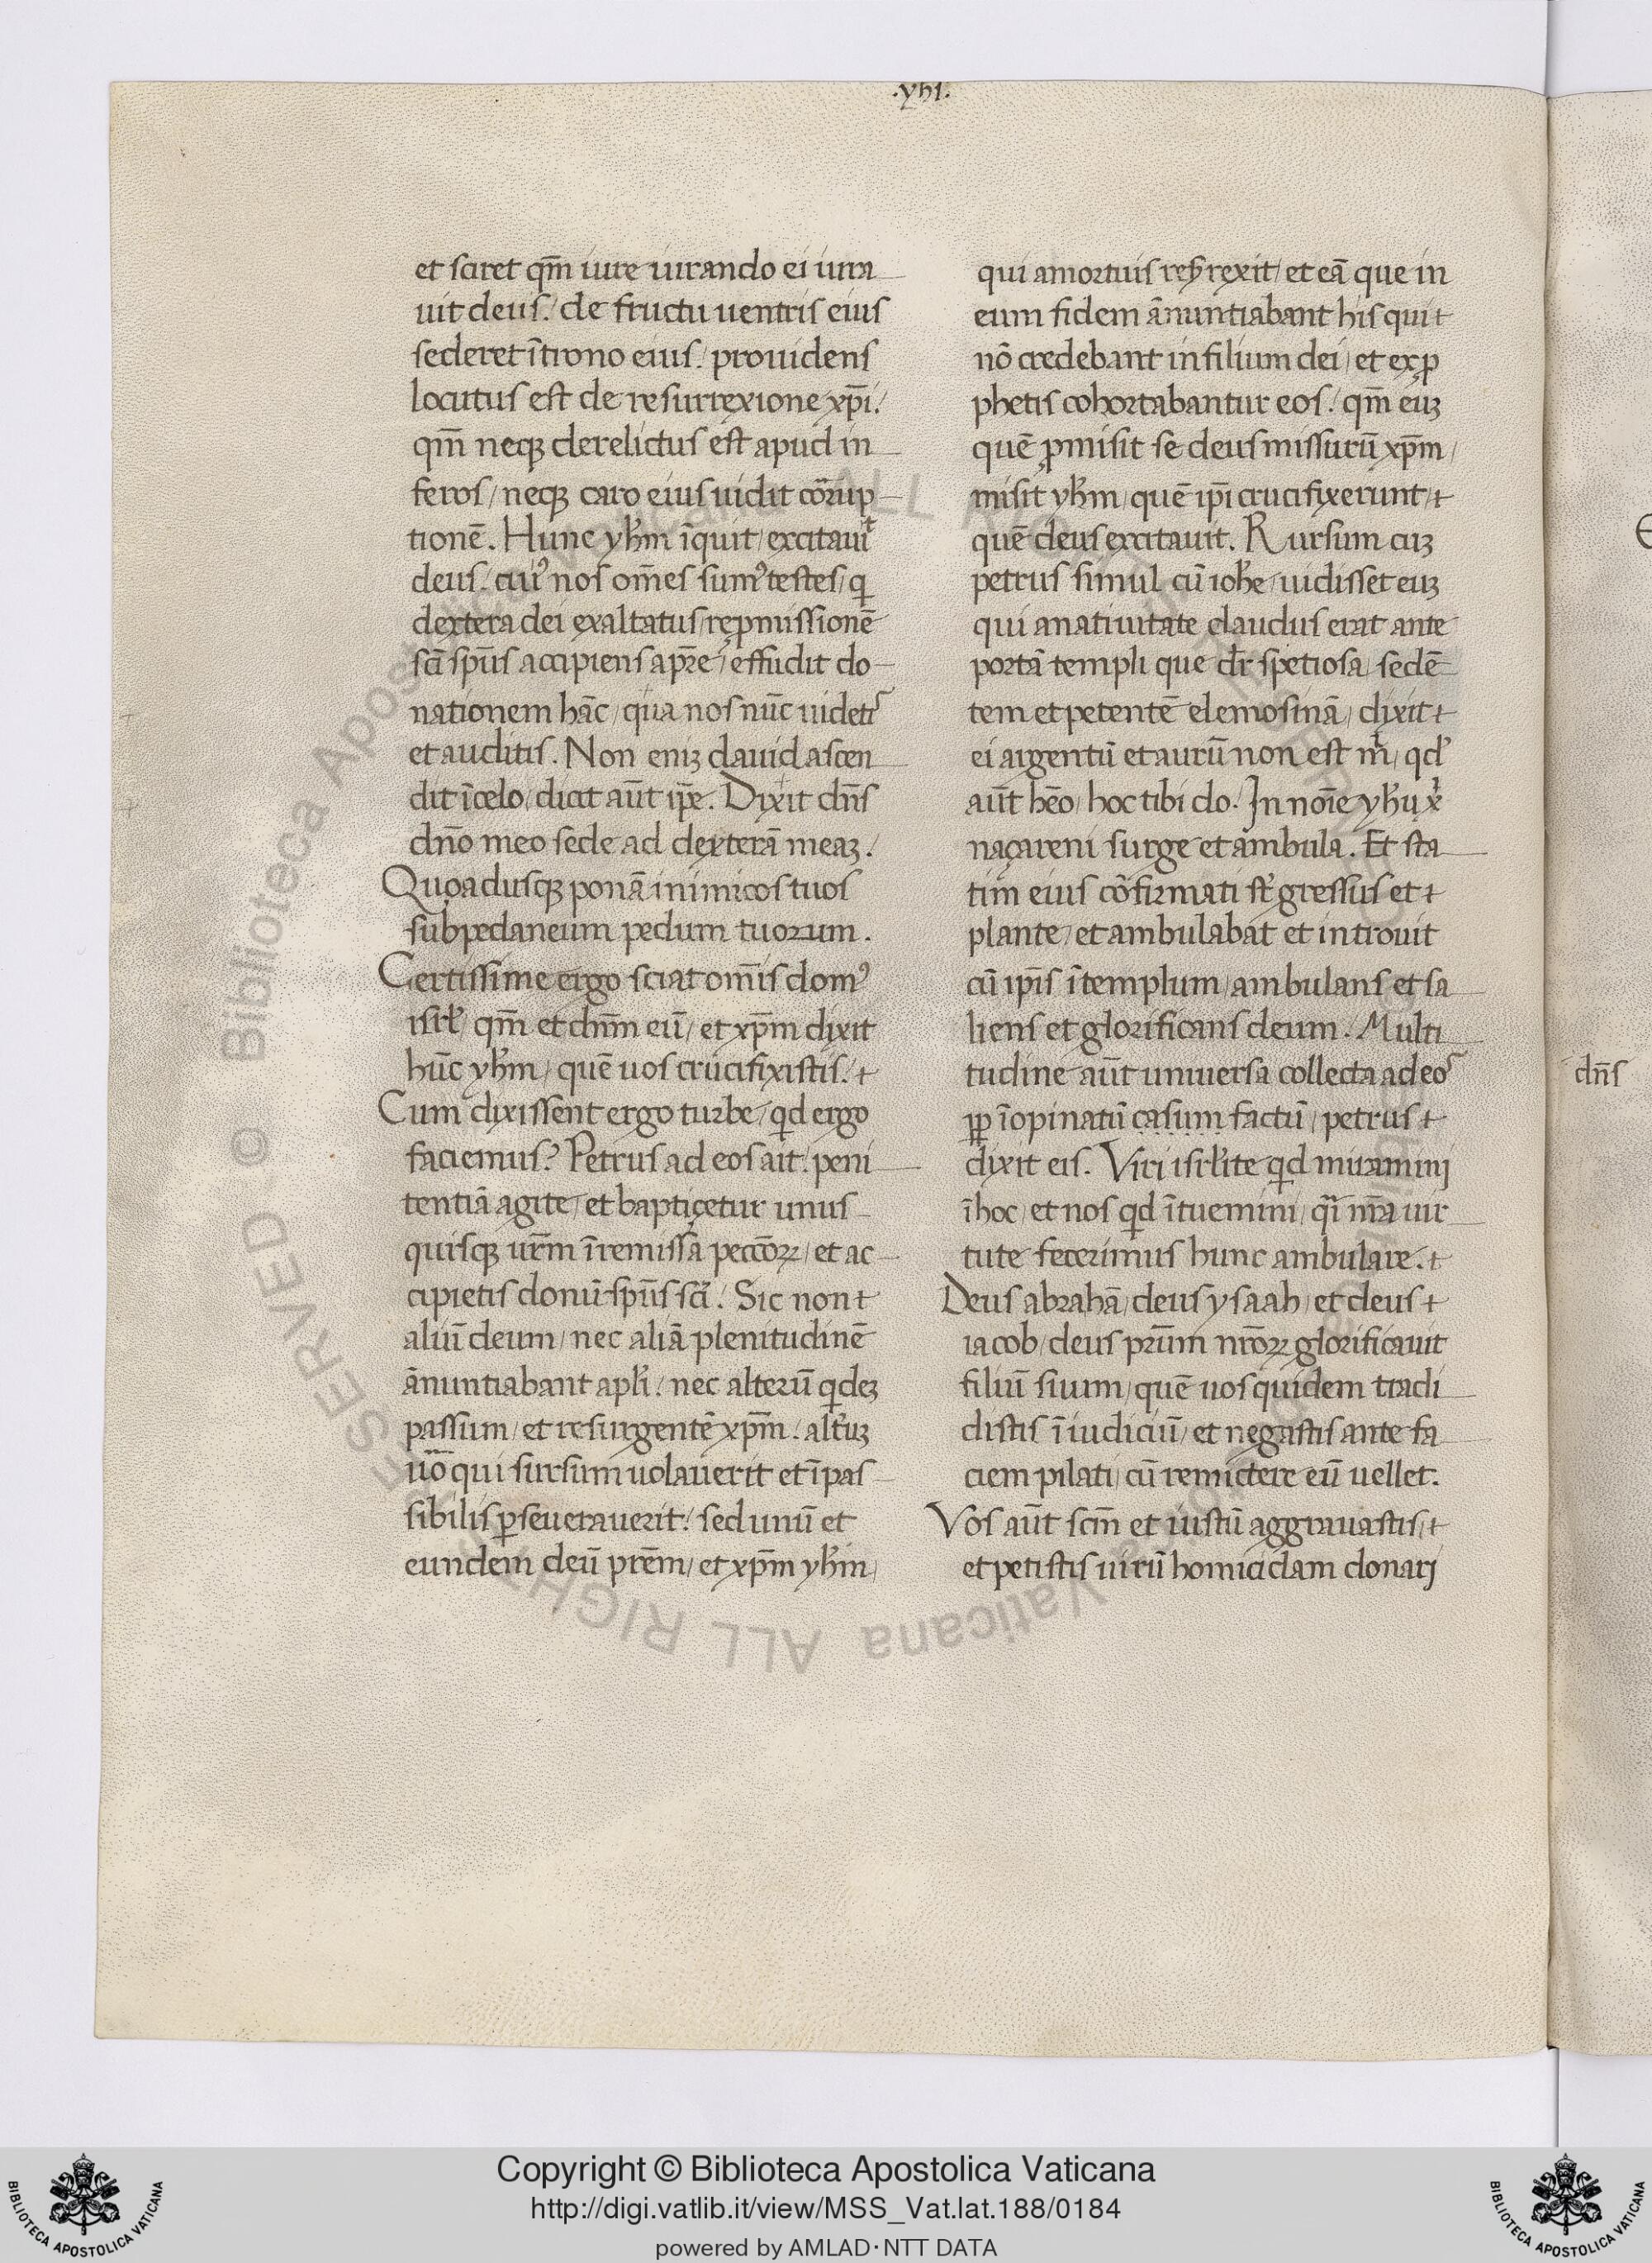 .yh̅1.
et sciret qm̅ iure iurando ei iura
uit deus. de fructu uentris eius
sederet ı̅ trono eius. prouidens
locutus est de resurrexione xp̅i.
qm̅ neqꝫ derelictus est apud in
feros / neqꝫ caro eius uidit co̅rup
tione̅. Hunc yh̅m ı̅quit / excitauit
deus. cuiꝰ nos om̅es sumꝰ testes / q̢
dextera dei exaltatus / repmissione̅
sc̅i sp̅us accipiens a pr̅e / effudit do
nationem ha̅c / qua nos nu̅c uidetis
et auditis. Non eniꝫ dauid ascen
dit ı̅ celo / dicit au̅t ip̅e. Dixit dn̅s
dn̅o meo sede ad dextera̅ meaꝫ.
Quoadusqꝫ pona̅ inimicos tuos
subpedaneum pedum tuorum.
Certissime ergo sciat om̅is domꝰ
isrl̅ qm̅ et dnm̅ eu̅ / et xp̅m dixit
hu̅c yh̅m / que̅ uos crucifixistis.
Cum dixissent ergo turbe / qd ergo
faciemus? Petrus ad eos ait. peni
tentia̅ agite / et bapticetur unus
quisqꝫ ur̅m ı̅ remissa̅ pecco̅ꝝ / et ac
cipietis donu̅ sp̅us sc̅i. Sic non
aliu̅ deum / nec alia̅ plenitudine̅
a̅nuntiabant apl̅i. nec alteru̅ qdeꝫ
passum / et resurgente̅ xp̅m. alt̅uꝫ
uo̅ qui sursum uolauerit et ı̅pas
sibilis ꝑseuerauerit. sed unu̅ et
eundem deu̅ pre̅m / et xp̅m yh̅m /
qui a mortuis resꝰrexit / et ea̅ que in
eum fidem a̅nuntiabant his qui
no̅ credebant in filium dei / et ex ꝓ
phetis cohortabantur eos. qm̅ euꝫ
que̅ ꝓmisit se deus missuru̅ xp̅m /
misit yh̅m / que̅ ip̅i crucifixerunt /
que̅ deus excitauit. Rursum cuꝫ
petrus simul cu̅ ioh̅e / uidisset euꝫ
qui a natiuitate claudus erat ante
porta̅ templi que dr̅ spetiosa / sede̅
tem et petente̅ elemosina̅ / dixit
ei argentu̅ et auru̅ non est m̅ / qd̅
au̅t he̅o / hoc tibi do. In no̅ie yh̅u x̅
naçareni surge et ambula. Et sta
tim eius co̅firmati st̅ gressus et
plante / et ambulabat et introuit
cu̅ ip̅is ı̅ templum / ambulans et sa
liens et glorificans deum. Multi
tudine au̅t uniuersa collecta ad eos
ꝓp ı̅opinatu̅ casum factu̅ / petrus
dixit eis. Viri isrl̅ite qd miramini
ı̅ hoc / et nos qd ı̅tuemini / q̅i nr̅a uir
tute fecerimus hunc ambulare.
Deus abraha̅ / deus ysaah / et deus
iacob / deus pr̅um nr̅oꝝ glorificauit
filiu̅ suum / que̅ uos quidem tradi
distis ı̅ iudiciu̅ / et negastis ante fa
ciem pilati / cu̅ remictere eu̅ uellet.
Vos au̅t sc̅m et iustu̅ aggrauastis /
et petistis uiru̅ homicidam donari
dn̅s
© Biblioteca Apostolica Vaticana ALL RIGHTS RESERVED
Copyright © Biblioteca Apostolica Vaticana
http://digi.vatlib.it/view/MSS_Vat.lat.188/0184
powered by AMLAD·NTT DATA
BIBLIOTECA APOSTOLICA VATICANA
BIBLIOTECA APOSTOLICA VATICANA